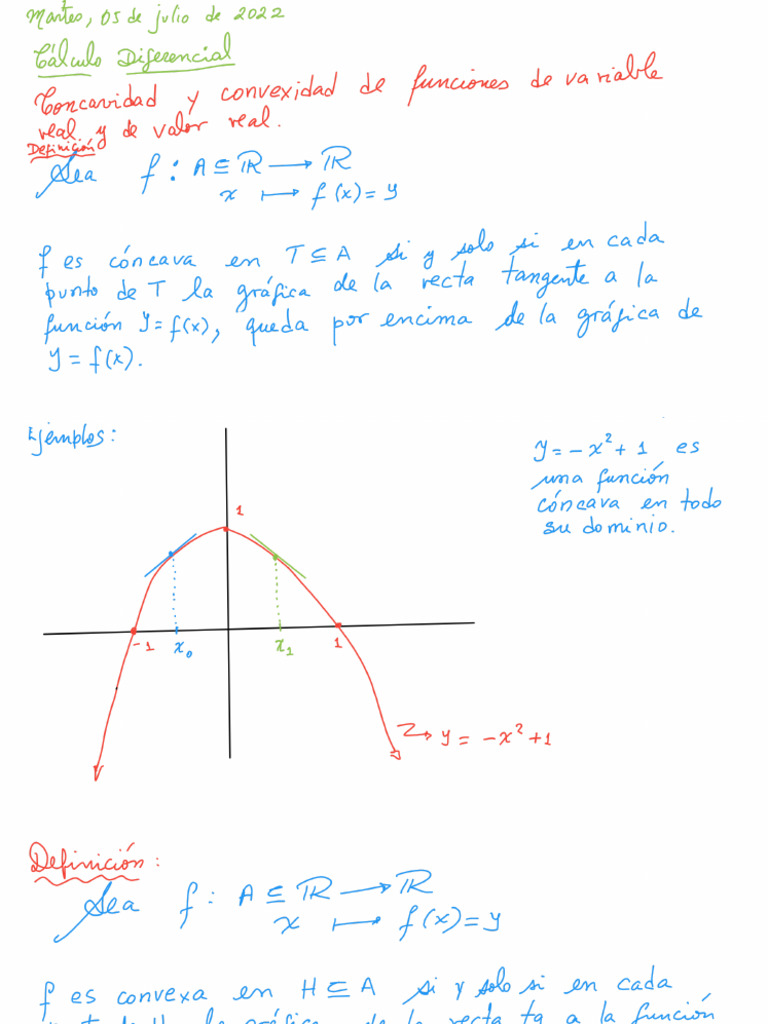 Martes, 05 de julio de 2022
Cálculo Diferencial
Concavidad y convexidad de funciones de variable
real y de valor real.
Definición
Sea f : A ⊆ ℝ → ℝ
x ↦ f(x) = y
f es cóncava en T ⊆ A si y solo si en cada
punto de T la gráfica de la recta tangente a la
función y = f(x), queda por encima de la gráfica de
y = f(x).
Ejemplos:
y = -x² + 1 es
una función
cóncava en todo
su dominio.
1
-1 x₀ x₁ 1
y = -x² + 1
Definición:
Sea f : A ⊆ ℝ → ℝ
x ↦ f(x) = y
f es convexa en H ⊆ A si y solo si en cada
la gráfica de la recta tg a la función